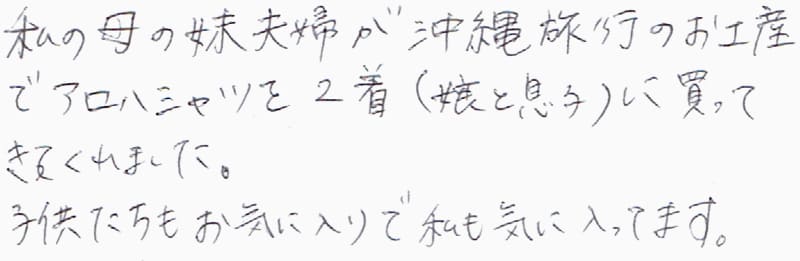 私の母の妹夫婦が沖縄旅行のお土産
でアロハシャツを2着(娘と息子)に買って
きてくれました。
子供たちもお気に入りで私も気に入ってます。